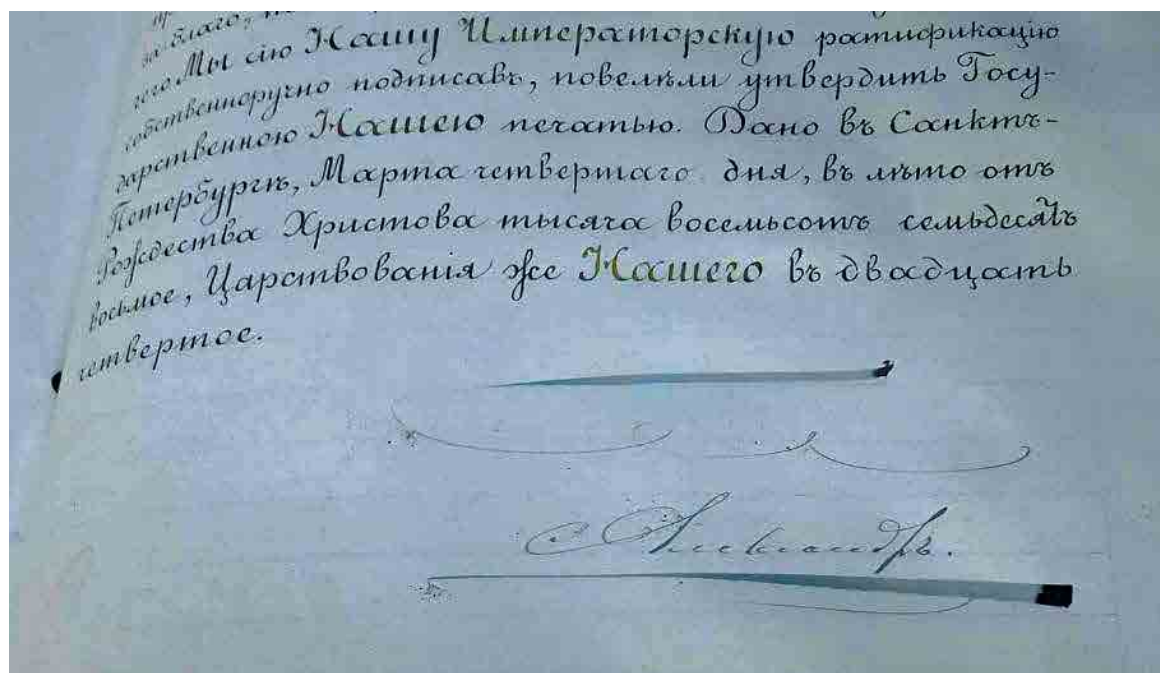 за благо,
чего Мы сію Нашу Императорскую ратификацію
собственноручно подписавъ, повелѣли утвердить Госу-
дарственною Нашею печатью. Дано въ Санктъ-
Петербургѣ, Марта четвертаго дня, въ лѣто отъ
Рождества Христова тысяча восемьсотъ семьдесятъ
восьмое, Царствованія же Нашего въ двадцать
четвертое.
Александръ.